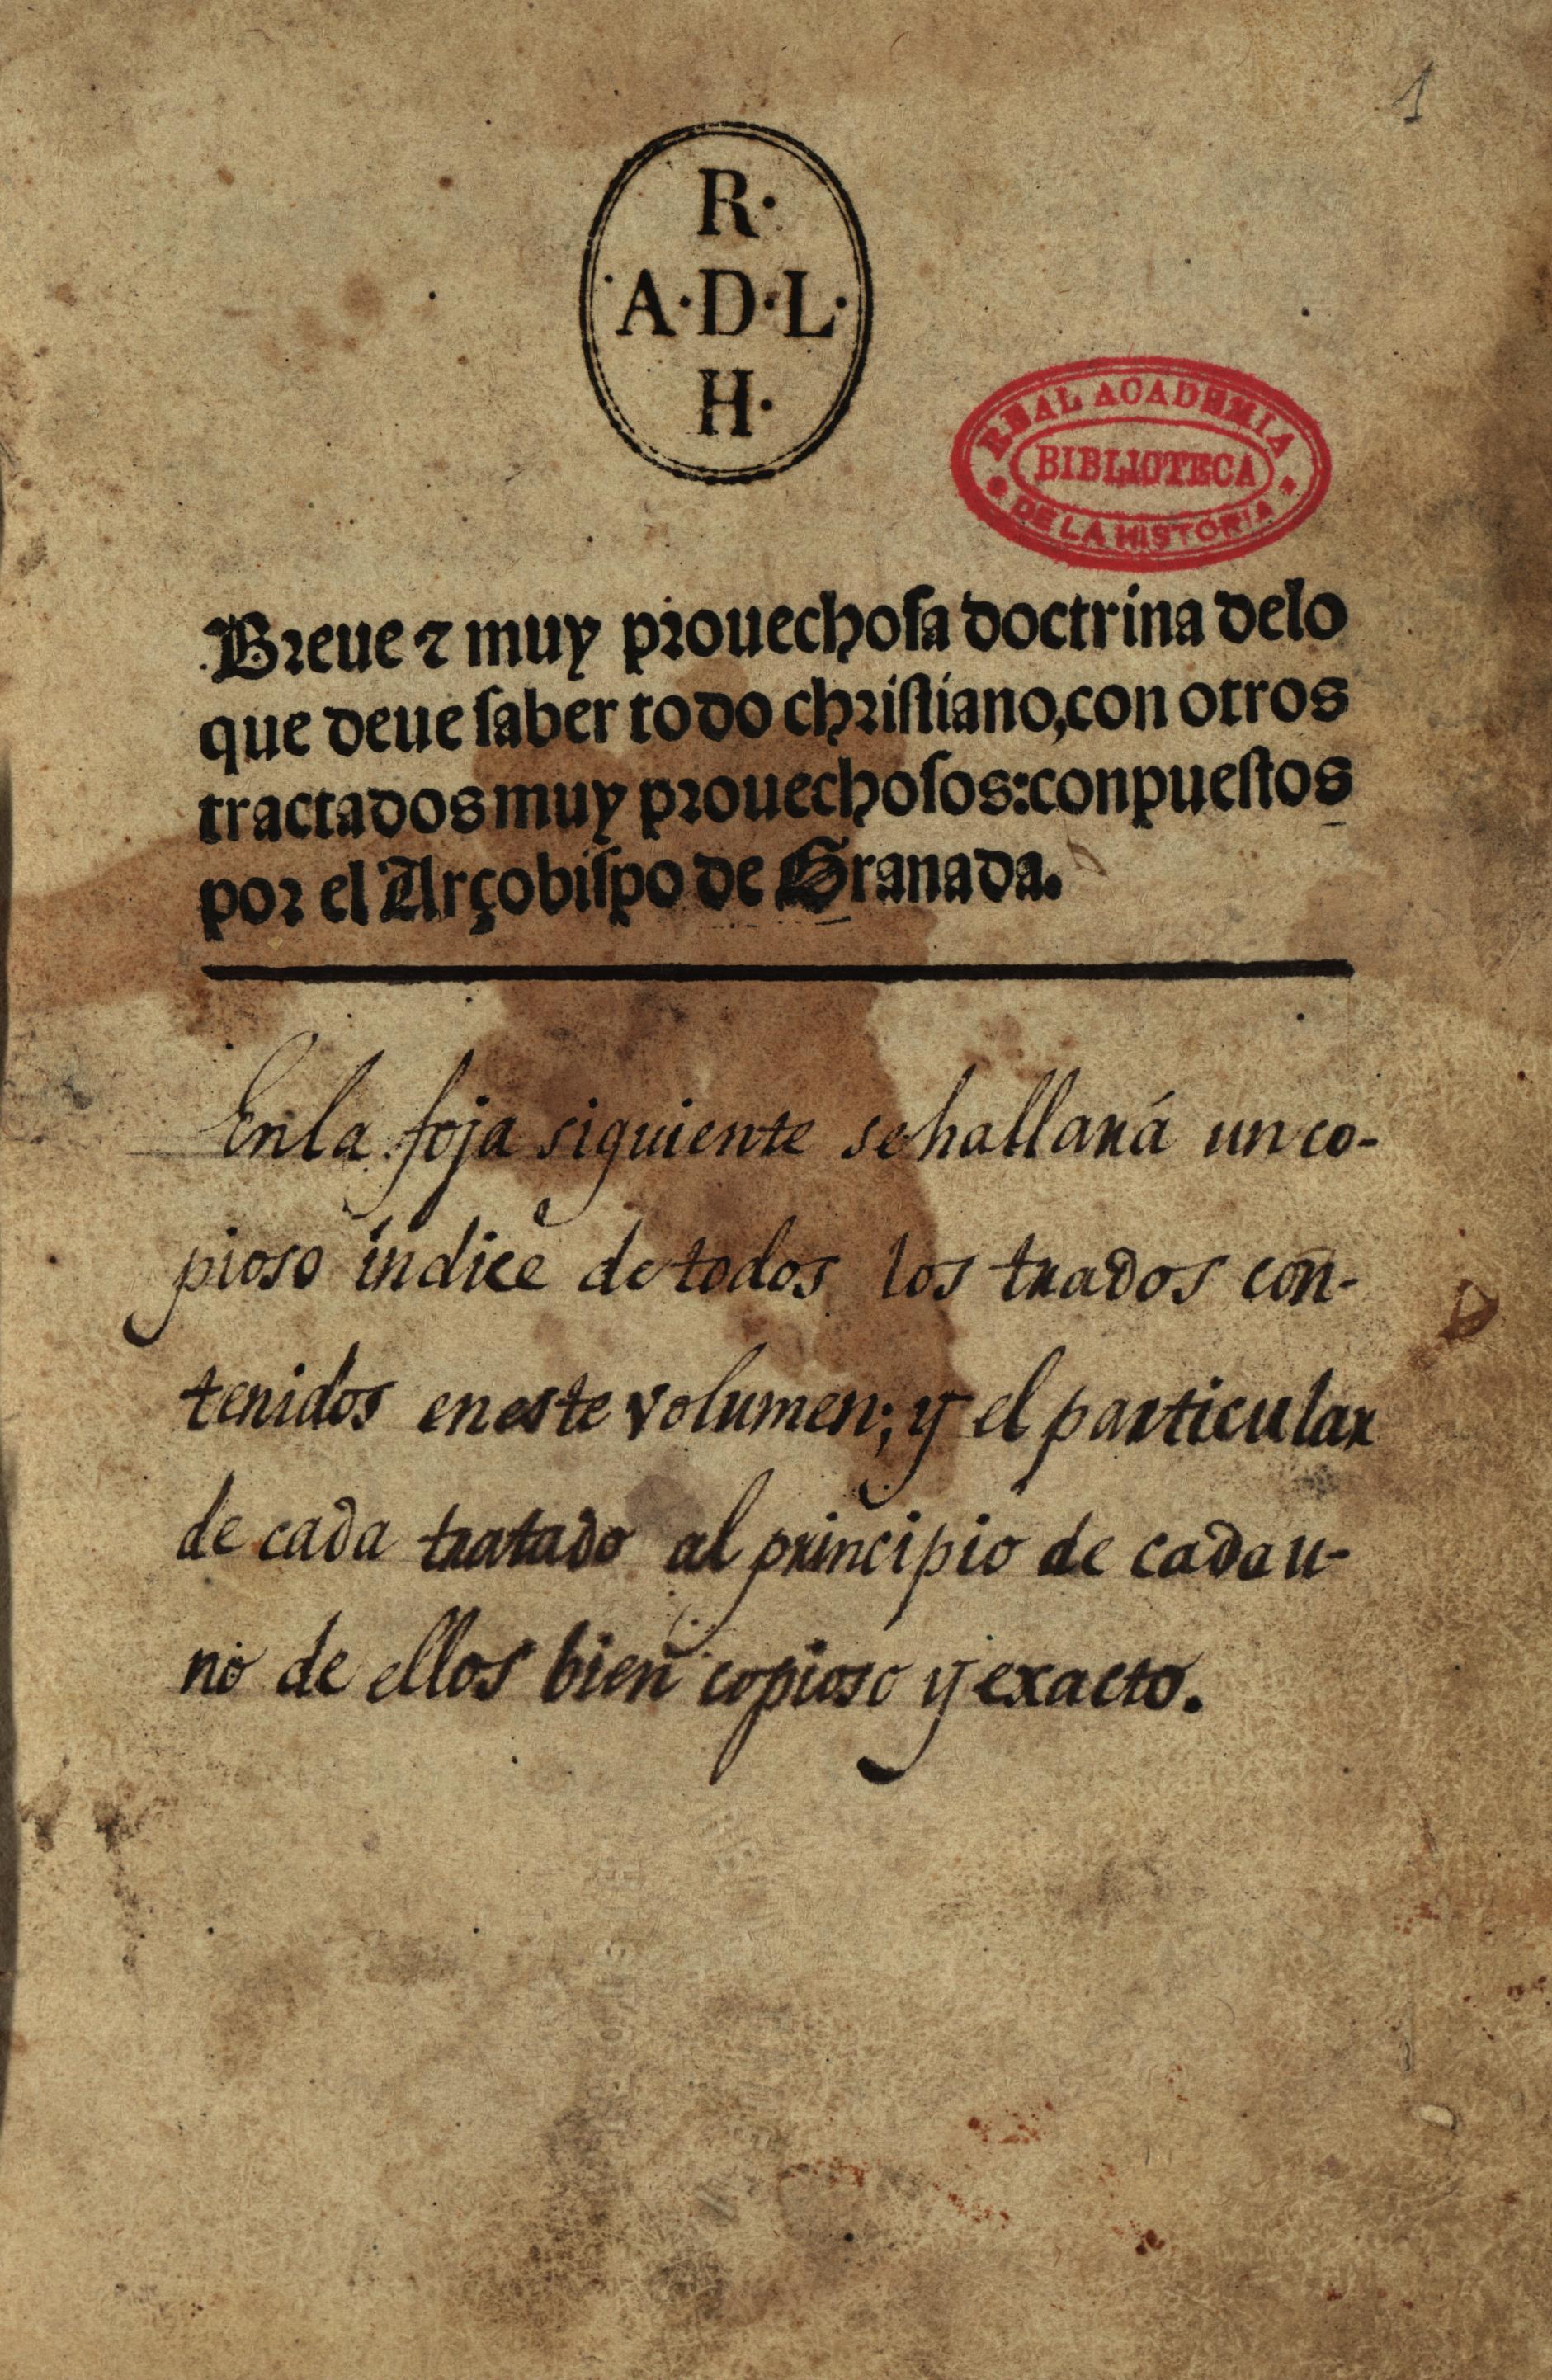 1
R·
A·D·L·
H·
REAL ACADEMIA
BIBLIOTECA
DE LA HISTORIA
Breue ⁊ muy prouechosa doctrina delo
que deue saber todo christiano, con otros
tractados muy prouechosos: conpuestos
por el Arçobispo de Granada.
En la foja siguiente se hallará un co-
pioso indice de todos los trados con-
tenidos en este volumen; y el particular
de cada tratado al principio de cada u-
no de ellos bien copioso y exacto.